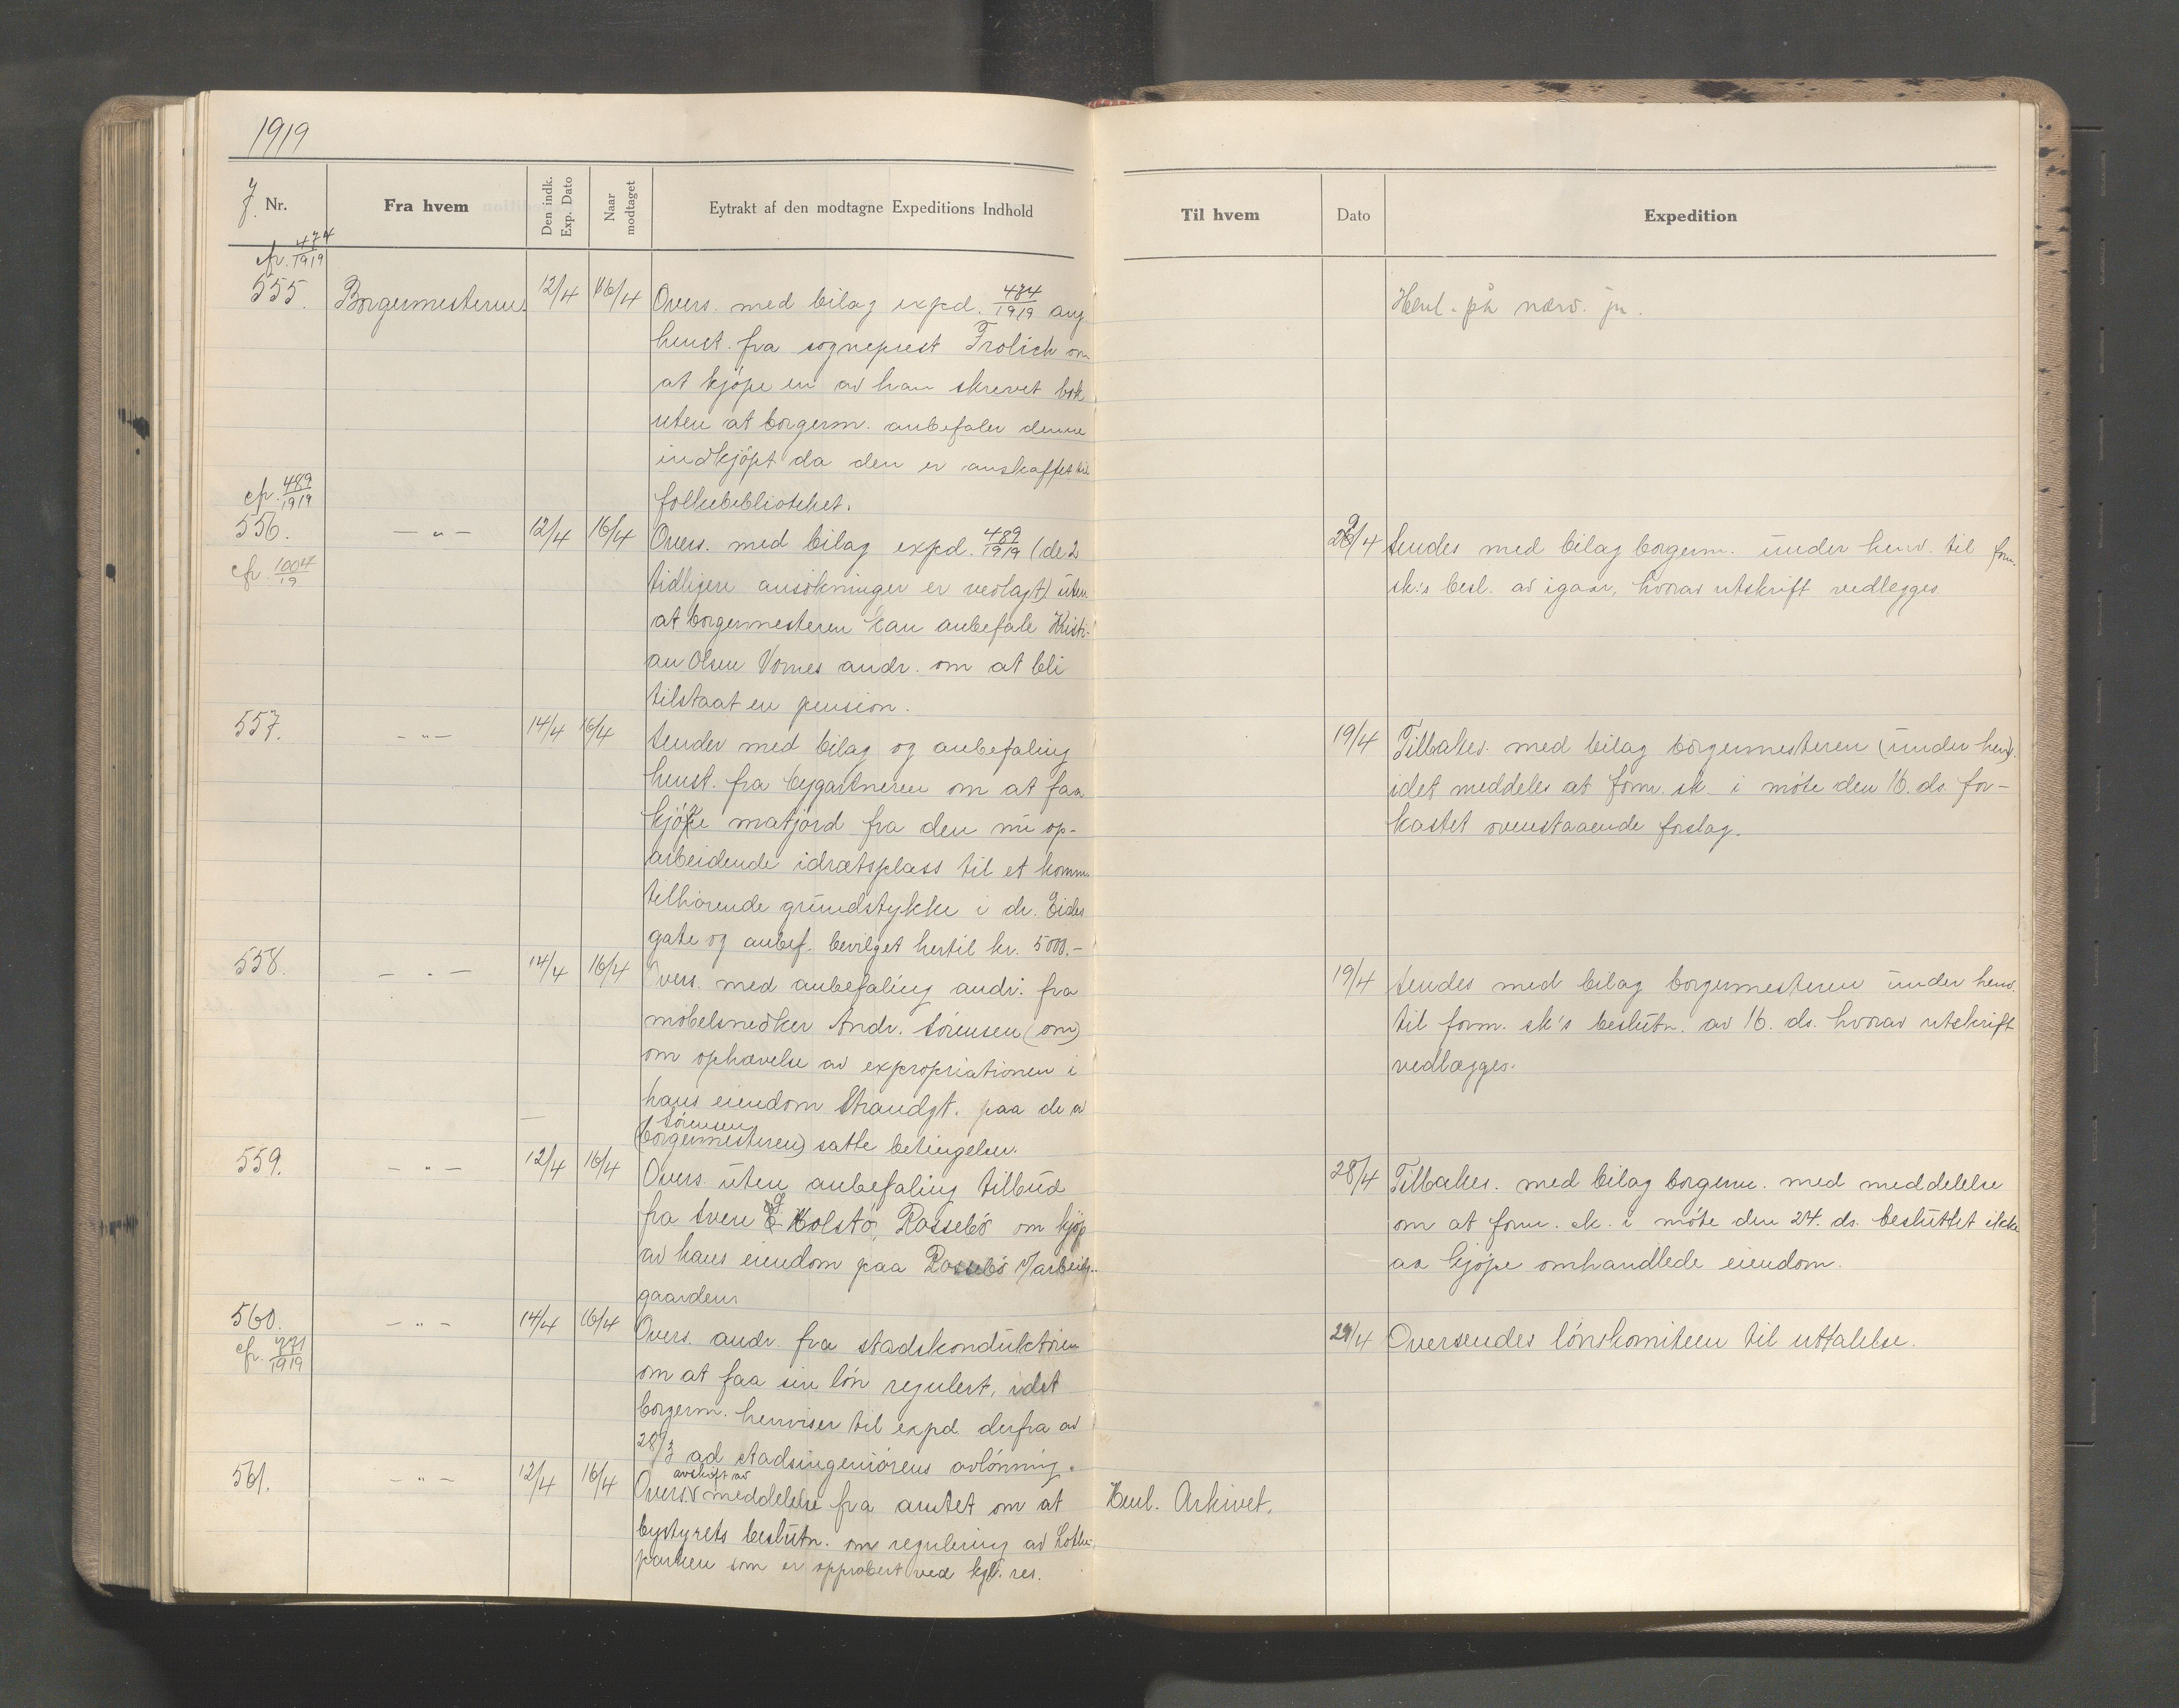 1919
J. Nr.
Fra hvem
Den indk. Exp. Dato
Naar modtaget
Eytrakt af den modtagne Expeditions Indhold
Til hvem
Dato
Expedition
cfr. 474/1919
555. Borgermesteren. 12/4 16/4 Overs. med bilag expd. 474/1919 ang.
henst. fra sogneprest Frolich om
at kjöpe en av ham skrevet bok
uten at borgerm. anbefaler denne
indkjöpt da den er anskaffet til
folkebibliotheket.
Henl. på nærv. jr.
cfr. 489/1919
556. — " — 12/4 16/4 Overs. med bilag expd. 489/1919 (de 2
cfr. 1004/19
tidligere ansökninger er vedlagt) uten
at borgermesteren kan anbefale Kristi-
an Olsen Vornes andr. om at bli
tilstaat en pension.
29/4 Sendes med bilag borgerm. under henv. til form.
sk.'s besl. av igaar, hvorav utskrift vedlegges
557. — " — 14/4 16/4 Sender med bilag og anbefaling
henst. fra bygartneren om at faa
kjöpe matjord fra den nu op-
arbeidende idrætsplass til et komm.
tilhörende grundstykke i dr. Eides
gate og anbef. bevilget hertil kr. 5000.-
19/4 Tilbakes. med bilag borgermesteren (under henv)
idet meddeles at form. sk. i möte den 16. ds. for-
kastet ovenstaaende forslag.
558. — " — 14/4 16/4 Overs. med anbefaling andr. fra
möbelsnedker Andr. Sörensen (om)
om ophævelse av expropriationen i
hans eiendom Strandgt. paa de av
Sörensen
(borgermesteren) satte betingelser.
19/4 Sendes med bilag borgermesteren under henv.
til form. sk's beslutn. av 16. ds. hvorav utskrift
vedlægges.
559. — " — 12/4 16/4 Overs. uten anbefaling tilbud
fra Sven Kolstö, Rossebö om kjöp
av hans eiendom paa Rossebö v/arbeids-
gaarden
28/4 Tilbakes. med bilag borgerm. med meddelelse
om at form. sk. i möte den 24. ds. besluttet ikke
aa kjöpe omhandlede eiendom.
560. — " — 14/4 16/4 Overs. andr. fra stadskonduktören
cfr. 771/1919
om at faa sin lön regulert, idet
borgerm. henviser til expd. derfra av
28/3 ad stadsingeniörens avlönning.
29/4 Oversendes lönskomiteen til uttalelse.
561. — " — 12/4 16/4 Overs. avskrift av meddelelse fra amtet om at
bystyrets beslutn. om regulering av Lothe-
parken som er approbert ved kgl. res.
Henl. Arkivet.